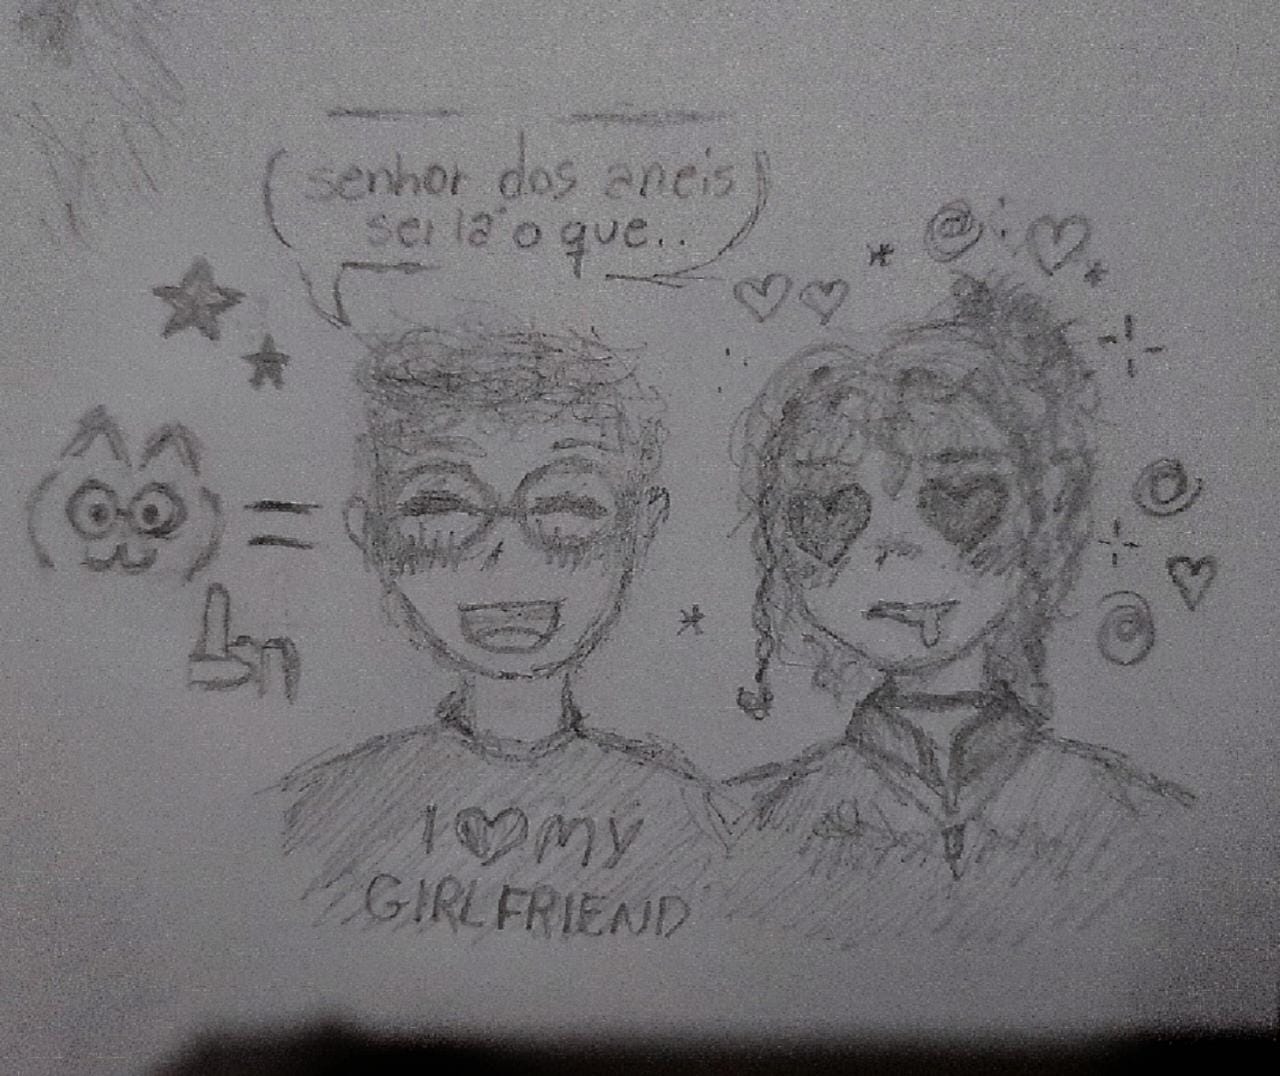 senhor dos aneis
sei lá o que..
I ♡ MY
GIRLFRIEND